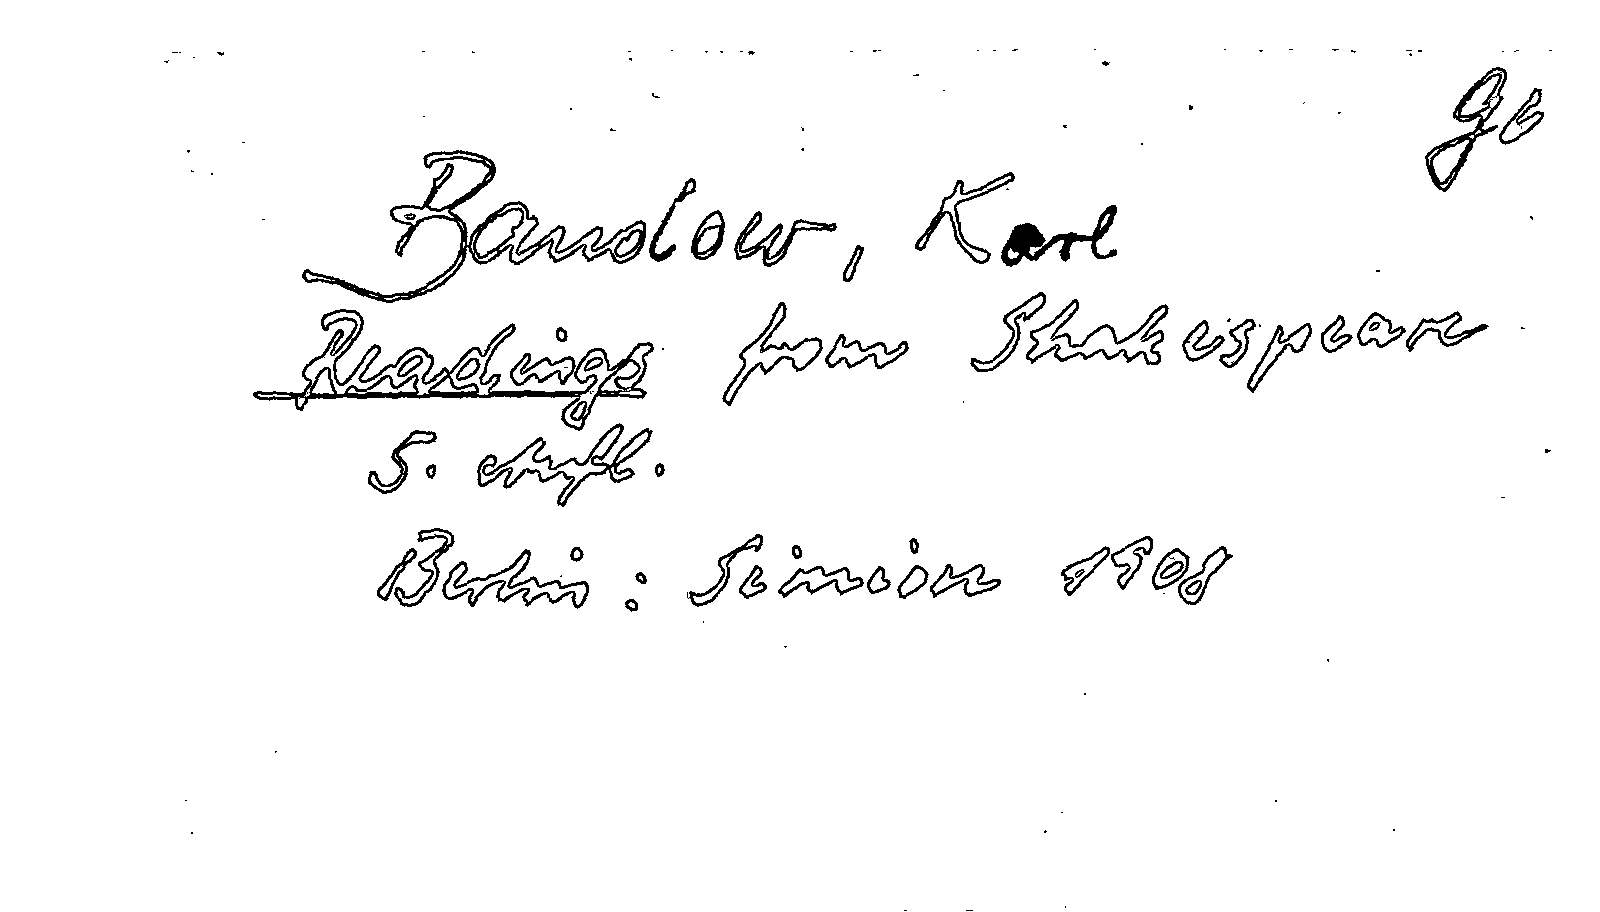 Ge
Bandow, Karl
Readings from Shakespeare
5. Aufl.
Berlin: Simion 1908